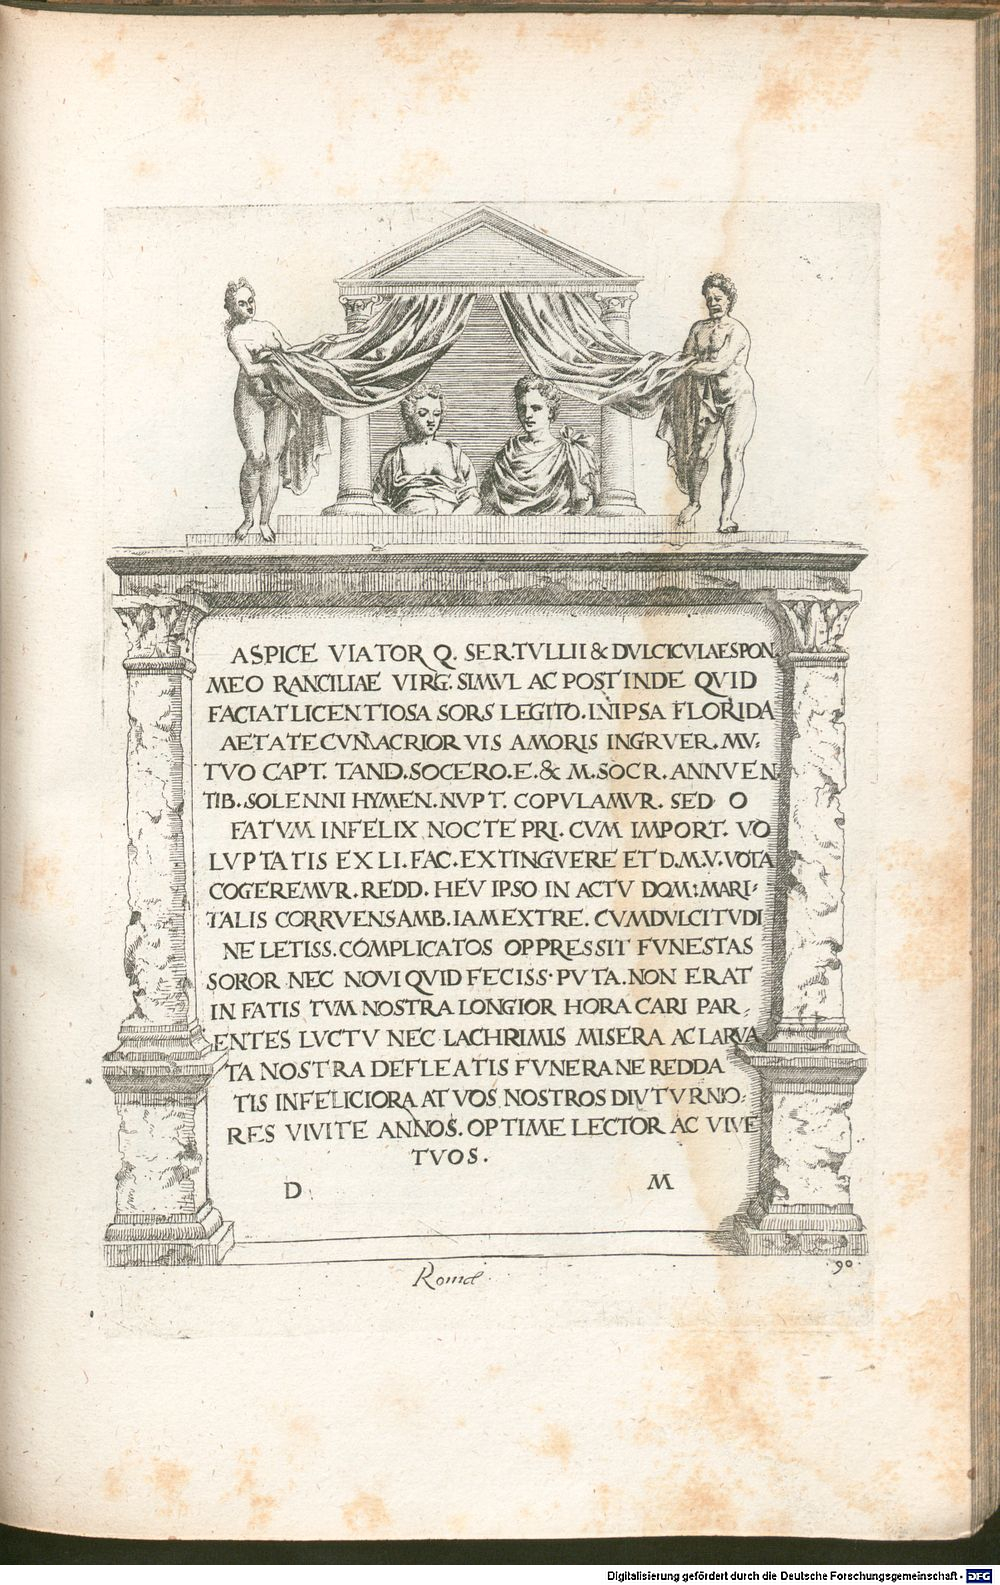 ASPICE VIATOR Q. SERTVLLII & DVLCICVLAE SPON.
MEO RANCILIAE VIRG. SIMVL AC POST INDE QVID
FACIAT LICENTIOSA SORS LEGITO. IN IPSA FLORIDA
AETATE CVM ACRIOR VIS AMORIS INGRVER. MV:
TVO CAPT. TAND. SOCERO. E. & M. SOCR. ANNVEN.
TIB. SOLENNI HYMEN. NVPT. COPVLAMVR. SED O
FATVM INFELIX NOCTE PRI. CVM IMPORT. VO
LVPTATIS EX LI. FAC. EXTINGVERE ET D. M. V. VOTA
COGEREMVR. REDD. HEV IPSO IN ACTV DOM: MARI:
TALIS CORRVENS AMB. IAM EXTRE. CVM DVLCITVDI
NE LETISS. COMPLICATOS OPPRESSIT FVNESTAS
SOROR NEC NOVI QVID FECISS. PVTA. NON ERAT
IN FATIS TVM NOSTRA LONGIOR HORA CARI PAR:
ENTES LVCTV NEC LACHRIMIS MISERA AC LARVA
TA NOSTRA DEFLEATIS FVNERA NE REDDA
TIS INFELICIORA AT VOS NOSTROS DIVTVRNO:
RES VIVITE ANNOS. OPTIME LECTOR AC VIVE
TVOS.
D M
Romæ.
90.
Digitalisierung gefördert durch die Deutsche Forschungsgemeinschaft - DFG